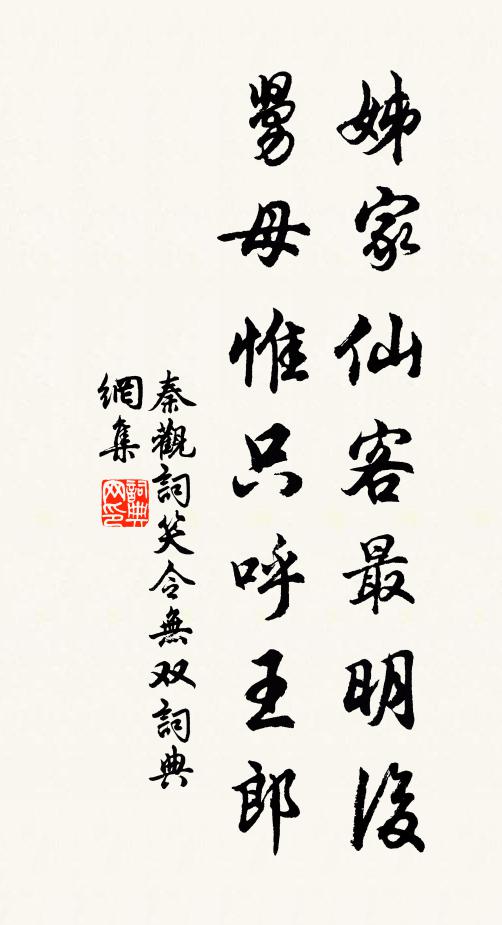 姊家仙客最明浚
舅母惟只呼王郎
秦觀詞笑令無双詞典
網集
詞典
网印